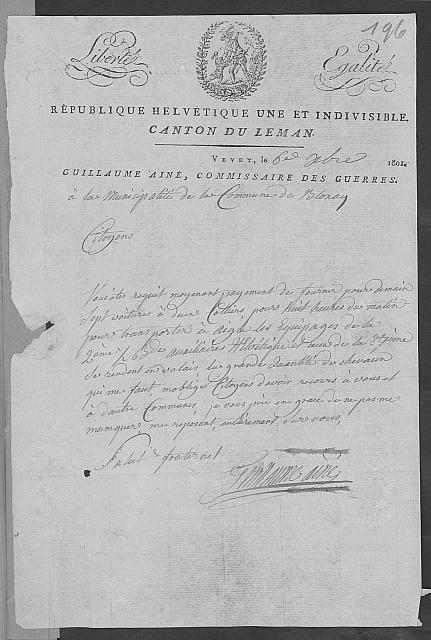 196
Liberté Egalité
RÉPUBLIQUE HELVÉTIQUE UNE ET INDIVISIBLE.
CANTON DU LEMAN.
VEVEY, le 6e Xbre 1801.
GUILLAUME AINÉ, COMMISSAIRE DES GUERRES.
à la Municipalité de la Commune de Blonay
Citoyens
Vous êtes requit moyenant payement de fournir pour demain
sept voitures à deux Colliers pour huit heures du matin
pour transporter à Aigle les Equipages de la
2eme de Auxiliaires Helvétique et aux de la
se rendent en valais la grande quantité de chevaux
qui me faut, m'oblige Citoyens d'avoir recours à vous et
à d'autre Communes, je vous prie en grace de ne pas me
manquer me reposent, entièrement sur vous,
Salut & fraternel
Guillaume ainé